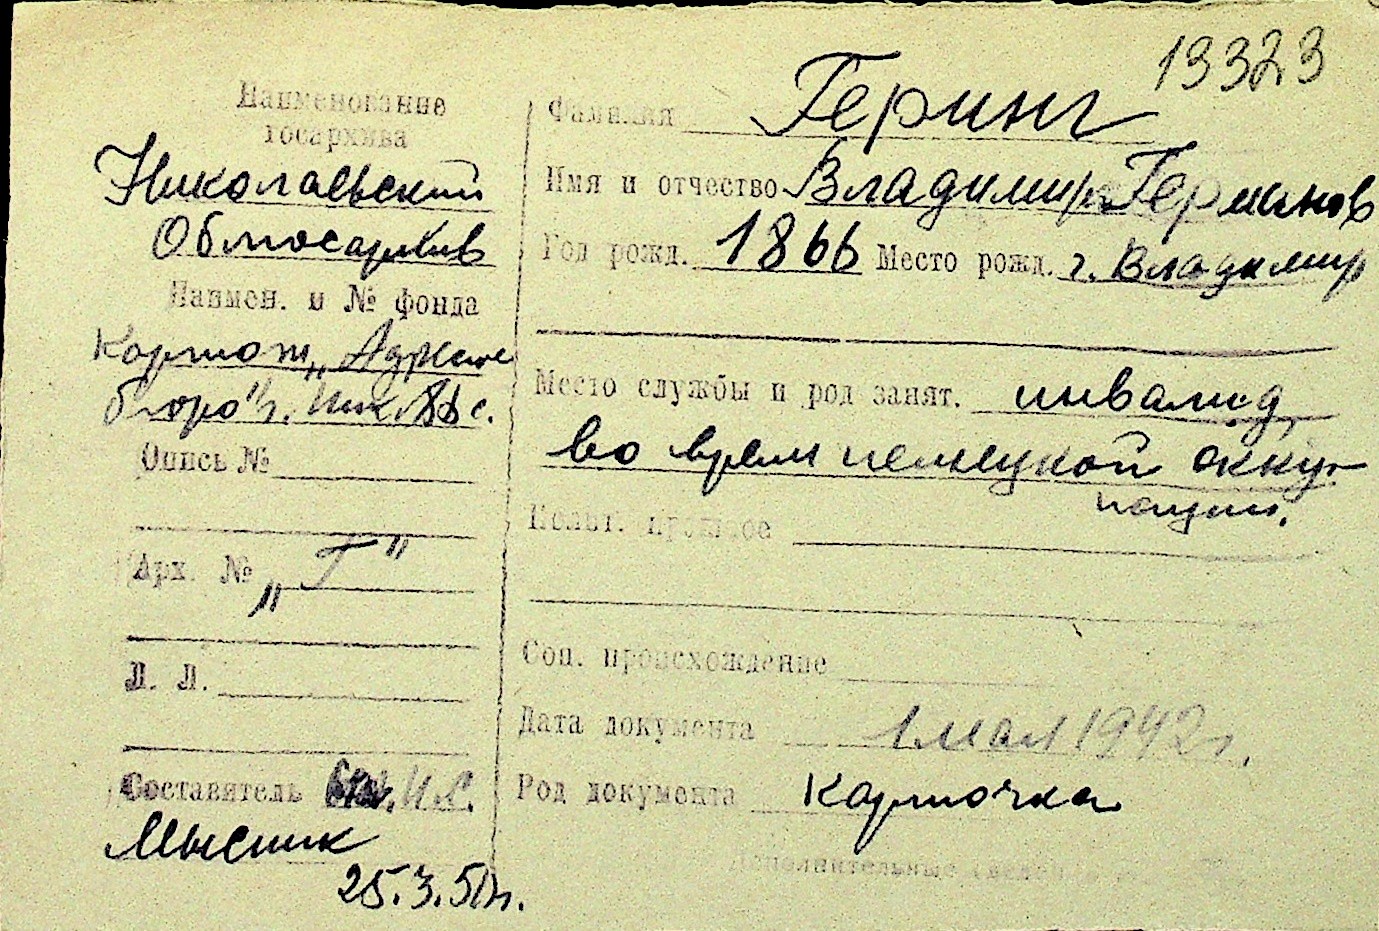 13323
Наименование
госархива
Николаевский
Облгосархив
Наимен. и № фонда
Картот. „Адресн
бюро" г. Ник.
Опись №
Арх. № „Г"
Л. Л.
Составитель
Мысник
25.3.50г.
Фамилия Геринг
Имя и отчество Владимир Германов
Год рожд. 1866 Место рожд. г. Владимир
Место службы и род занят. инвалид,
во время немецкой окку-
пации.
Соц. происхождение
Дата документа 1 мая 1942 г.
Род документа Карточка
Дополнительные сведения